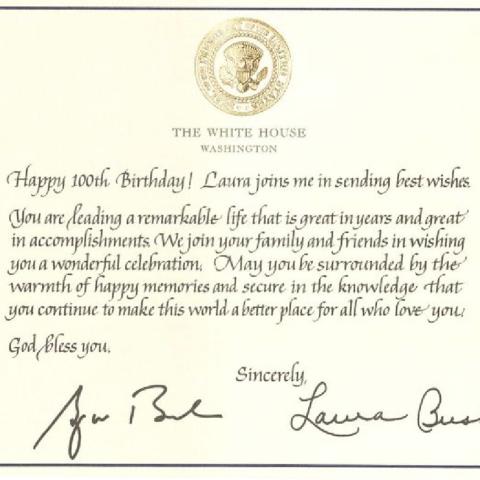 THE WHITE HOUSE
WASHINGTON
Happy 100th Birthday! Laura joins me in sending best wishes.
You are leading a remarkable life that is great in years and great
in accomplishments. We join your family and friends in wishing
you a wonderful celebration. May you be surrounded by the
warmth of happy memories and secure in the knowledge that
you continue to make this world a better place for all who love you.
God bless you.
Sincerely,
Laura Bus